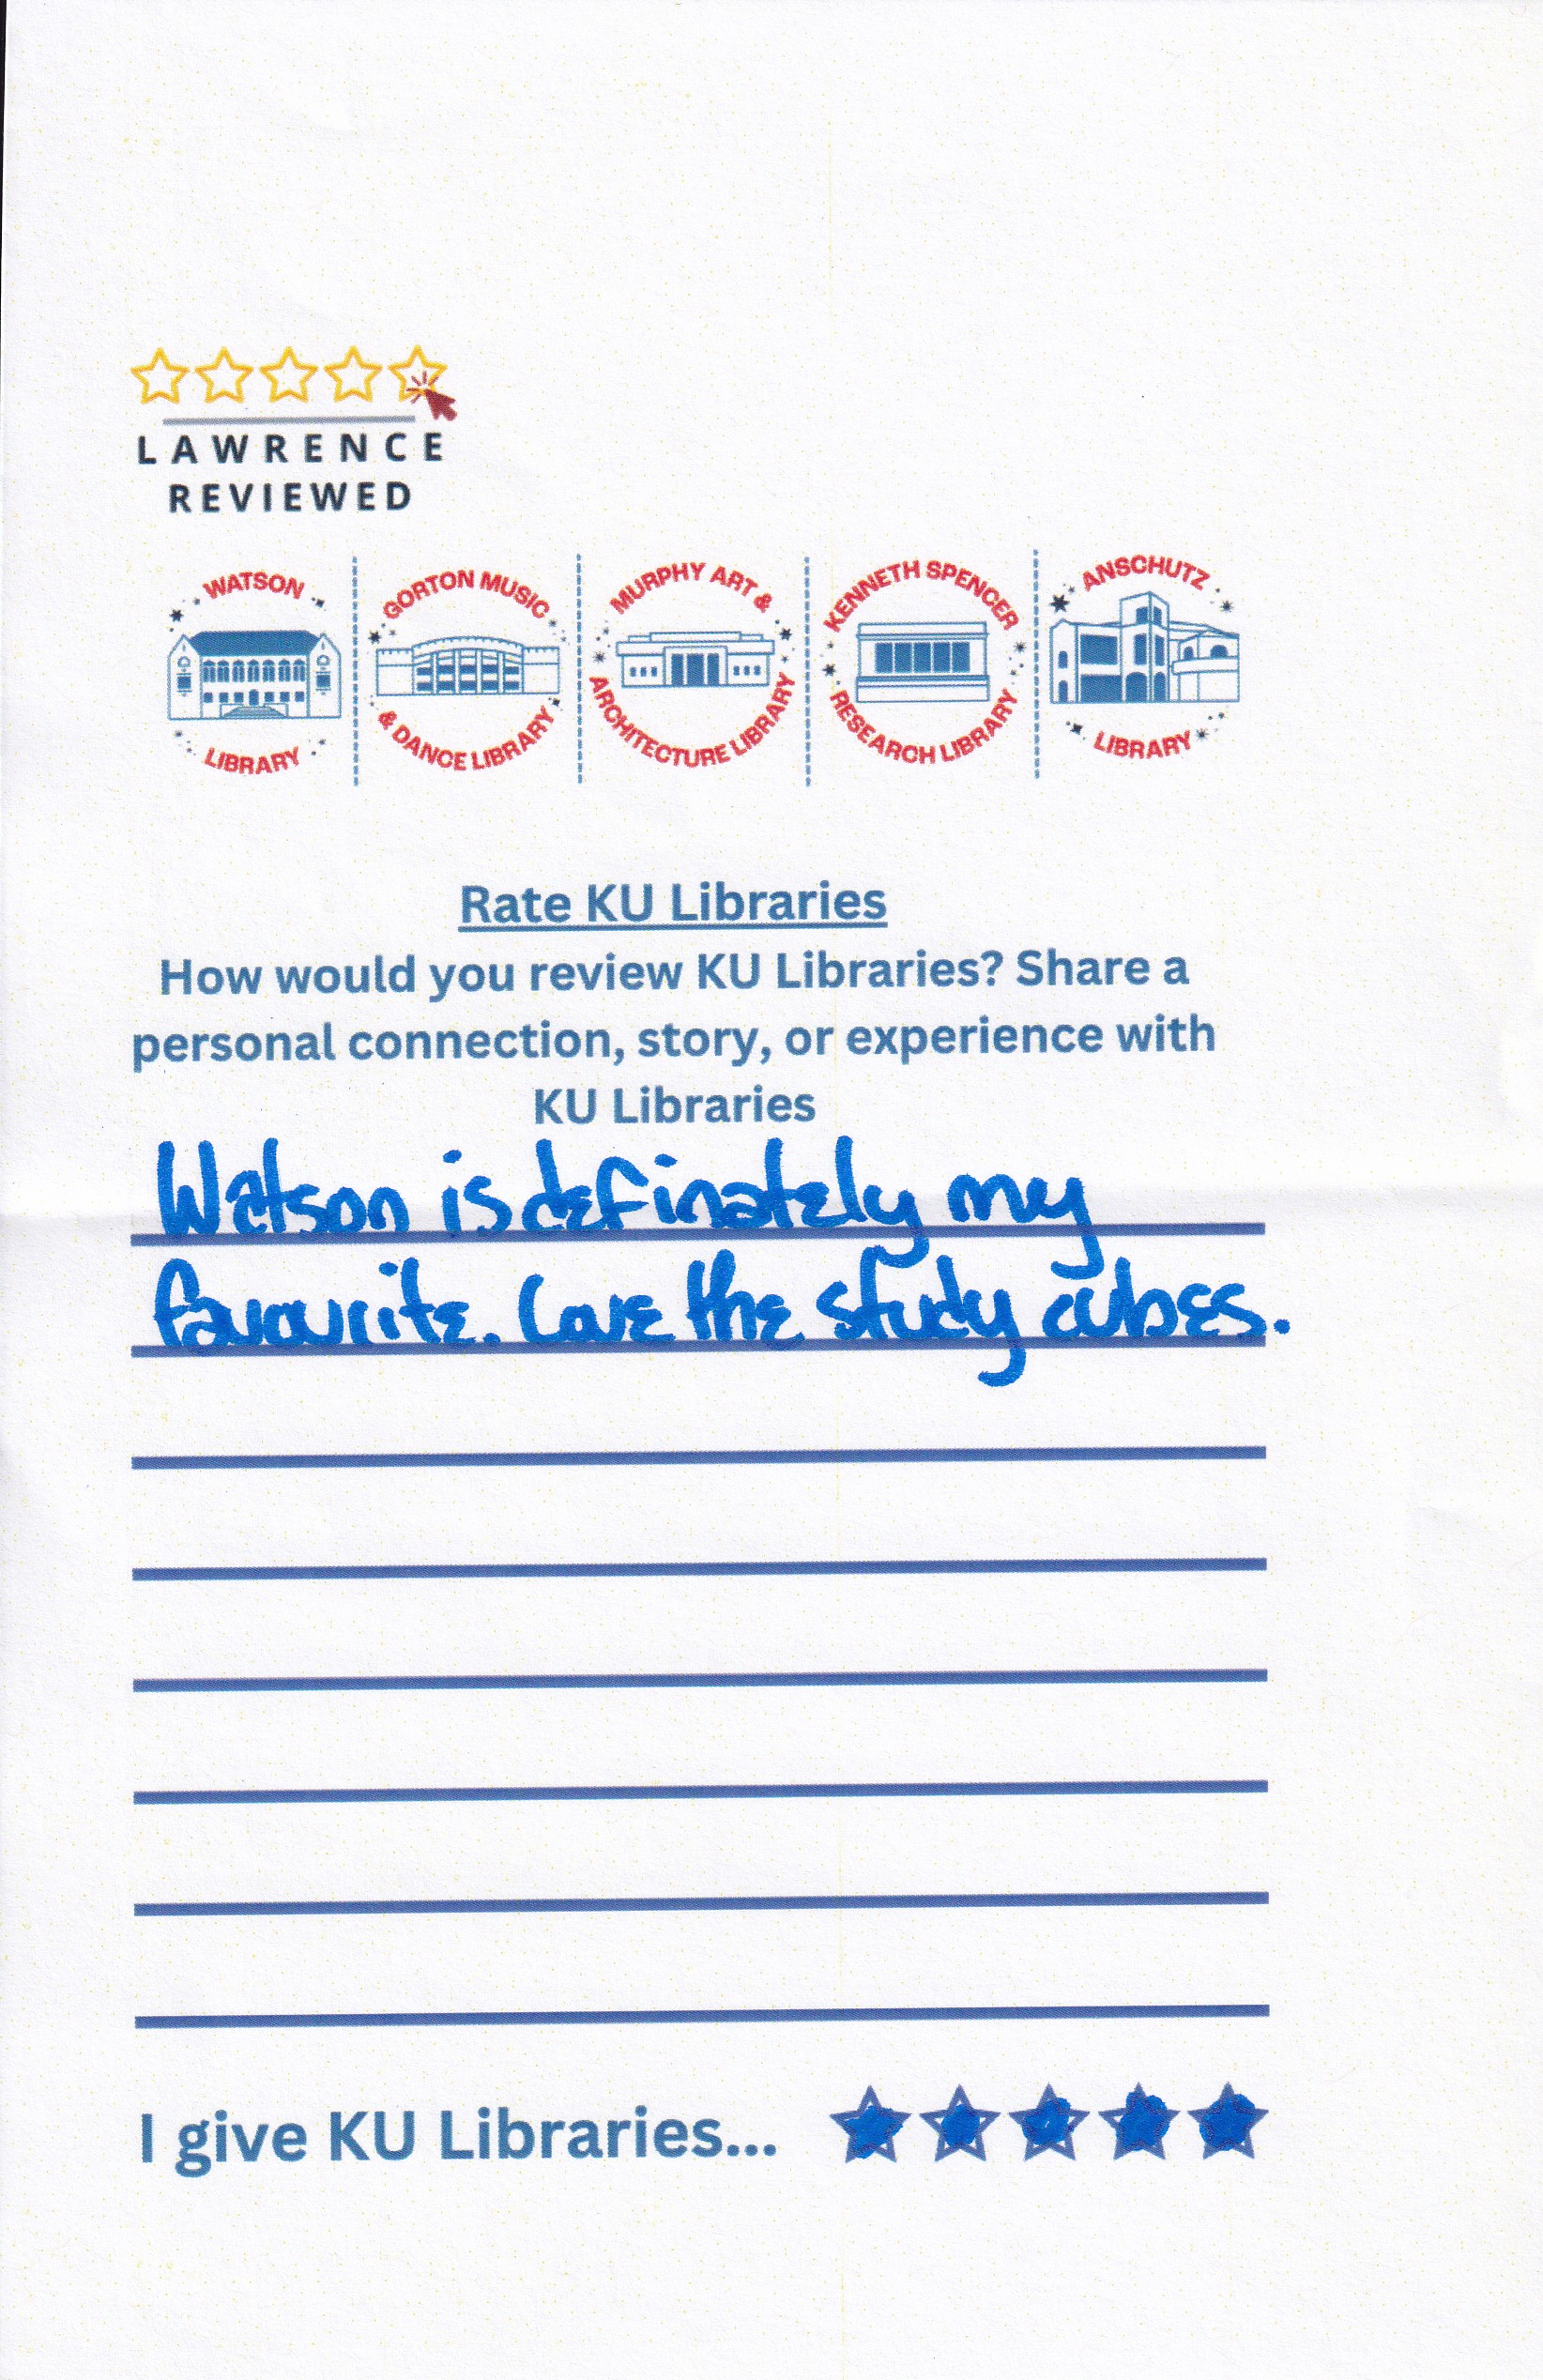 LAWRENCE
REVIEWED
WATSON
LIBRARY
GORTON MUSIC
& DANCE LIBRARY
MURPHY ART &
ARCHITECTURE LIBRARY
KENNETH SPENCER
RESEARCH LIBRARY
ANSCHUTZ
LIBRARY
Rate KU Libraries
How would you review KU Libraries? Share a
personal connection, story, or experience with
KU Libraries
Watson is definately my
favourite. Love the study cubes.
I give KU Libraries...